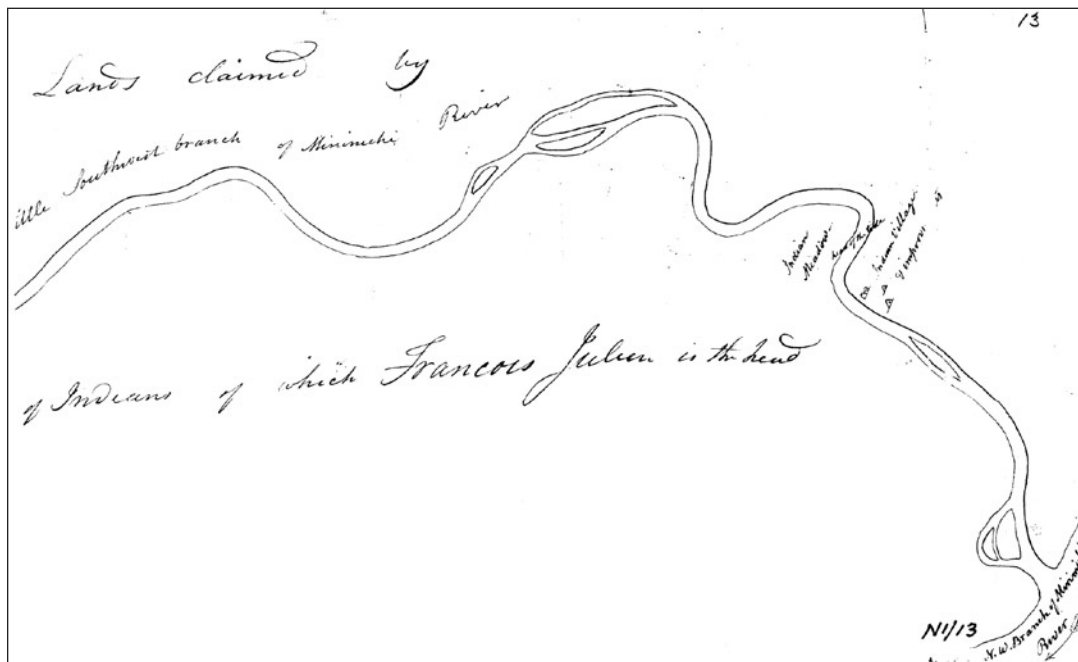 13
Lands claimed by
ittle Southwest branch of Mirimichi River
Indian
Meadow
Indian Village
of Indians of which Francois Julien is the head
N1/13
N.W. Branch of Mirimi
River